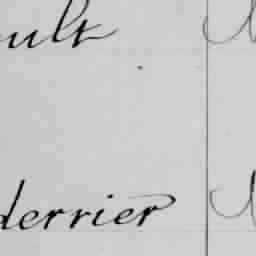 ult
derrier